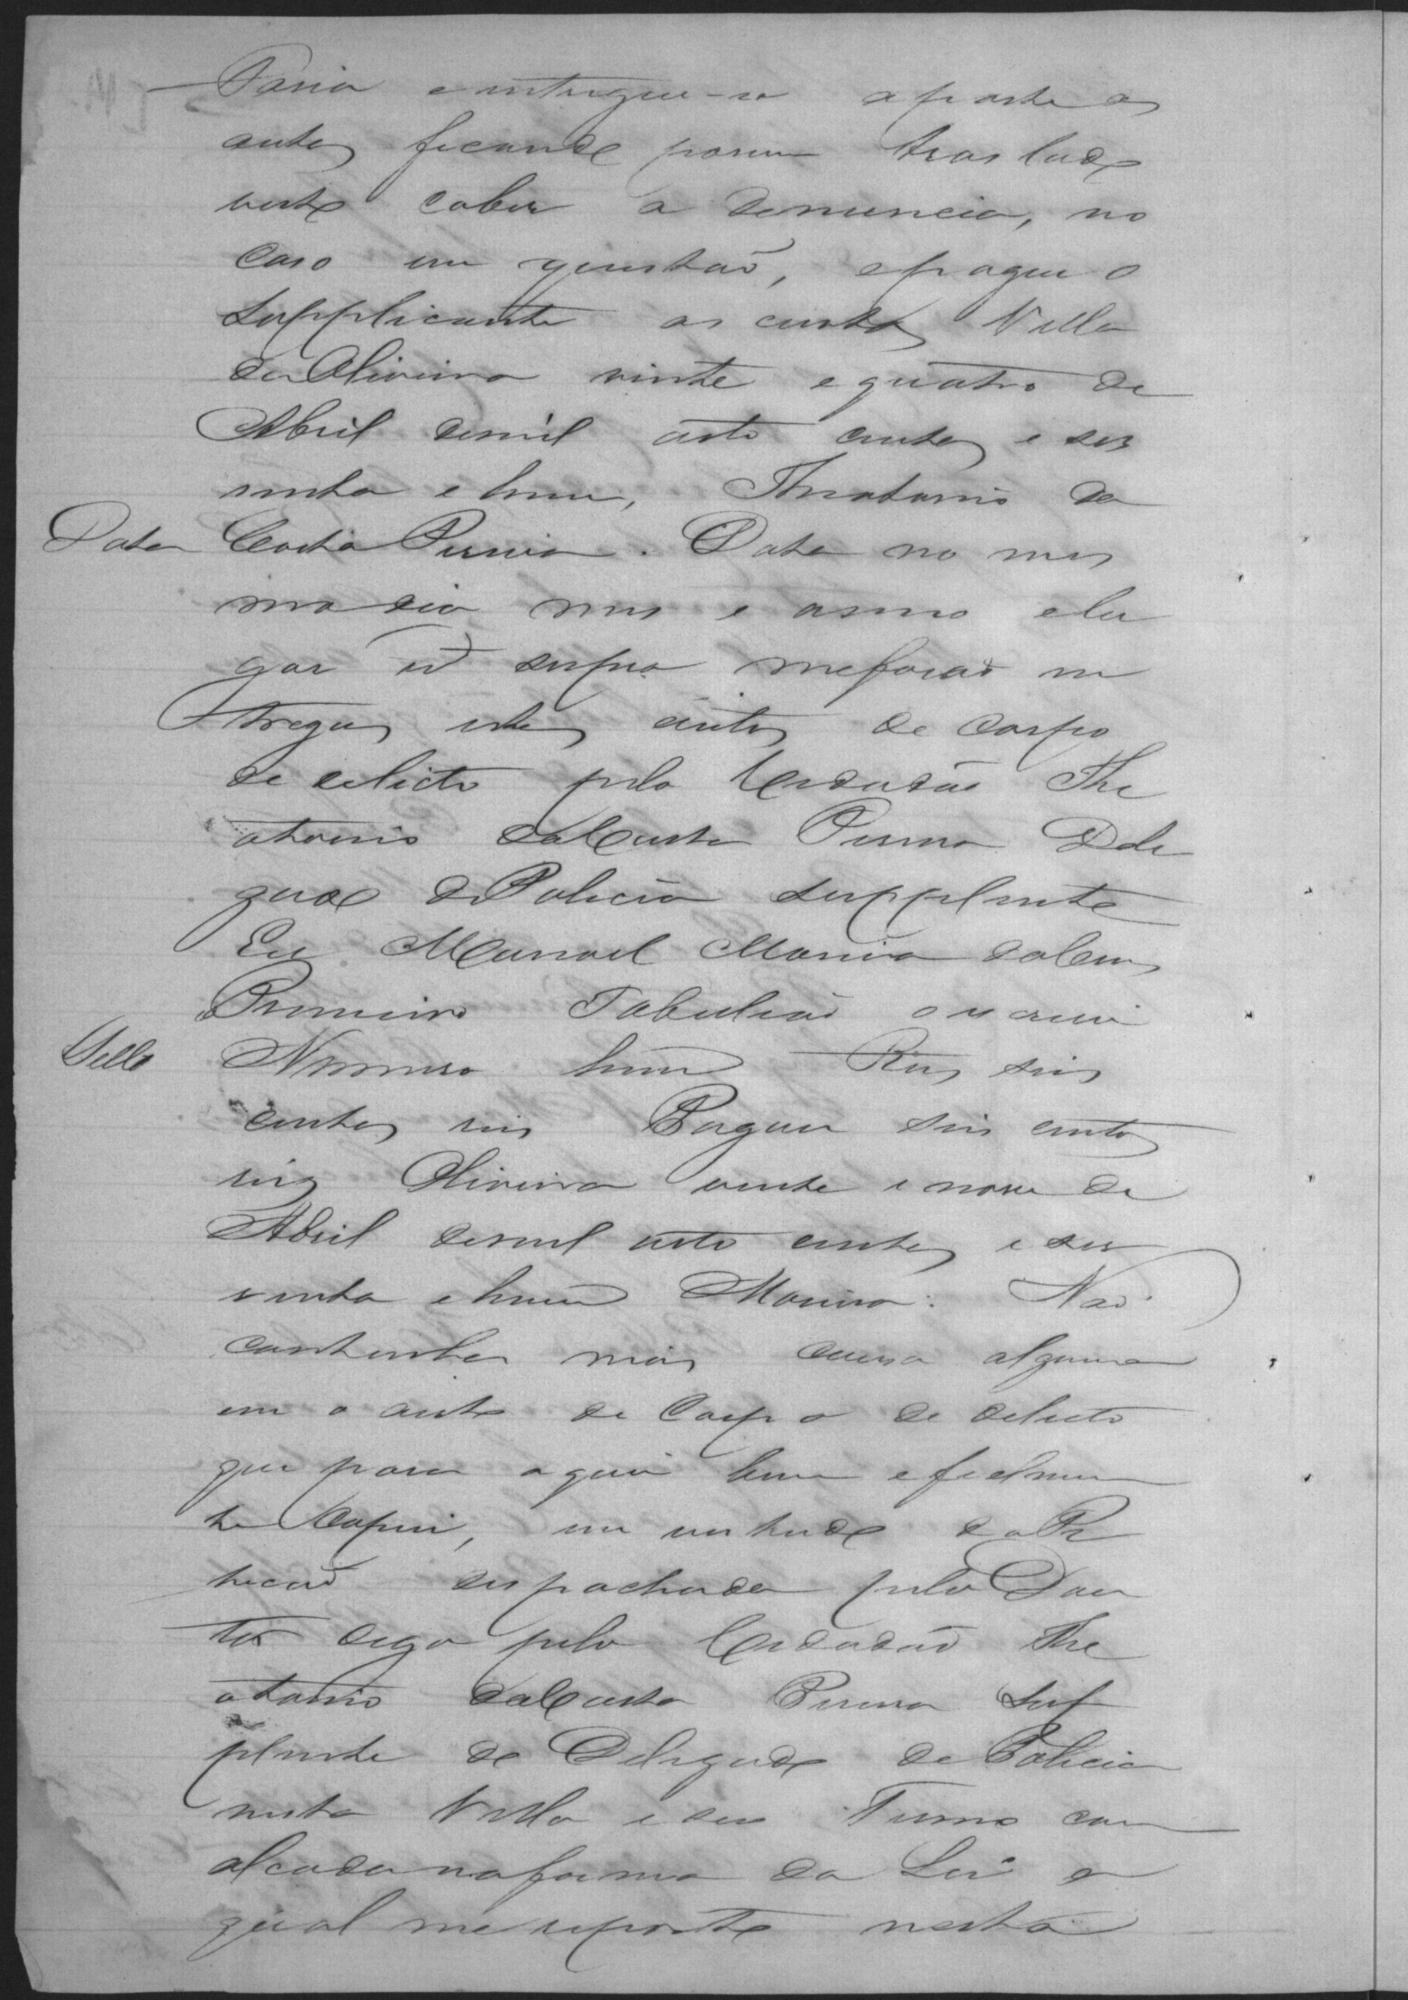 e entregue-se a parte os
autos ficando porem traslado
neste caber a denuncia, no
caso em questaõ, epague o
Supplicante as custas Villa
da Oliveira vinte equatro de
Abril demil oito centos e ses
senta e hum, Theotonio da
Data Costa Pereira. Data no mes
mo dia mes e anno elu
gar ut supra meforaõ en
tregues estes autos de corpo
de delicto pelo Cidadaõ The
otonio daCosta Pereira Dele
gado dePolicia supplente
Eu Manoel Maria
Primeiro Tabeliaõ o escrevi
Sello Numero hum Reis seis
centos reis Pagou seis centos
reis Oliveira vinte e nove de
Abril demil oito centos e ses
senta ehum Moreira. Naõ
continha mais cousa alguma
em o auto de Corpo de delicto
que para aqui bem efielmen
te Copiei, em virtude daPe
ticaõ despachada pelo Dou
tor digo pelo Cidadaõ The
otonio daCosta Pereira Sup
plente de Delegado de Policia
nesta Villa e seu Termo com
alcada naforma da Lei a
qual me reporto nesta